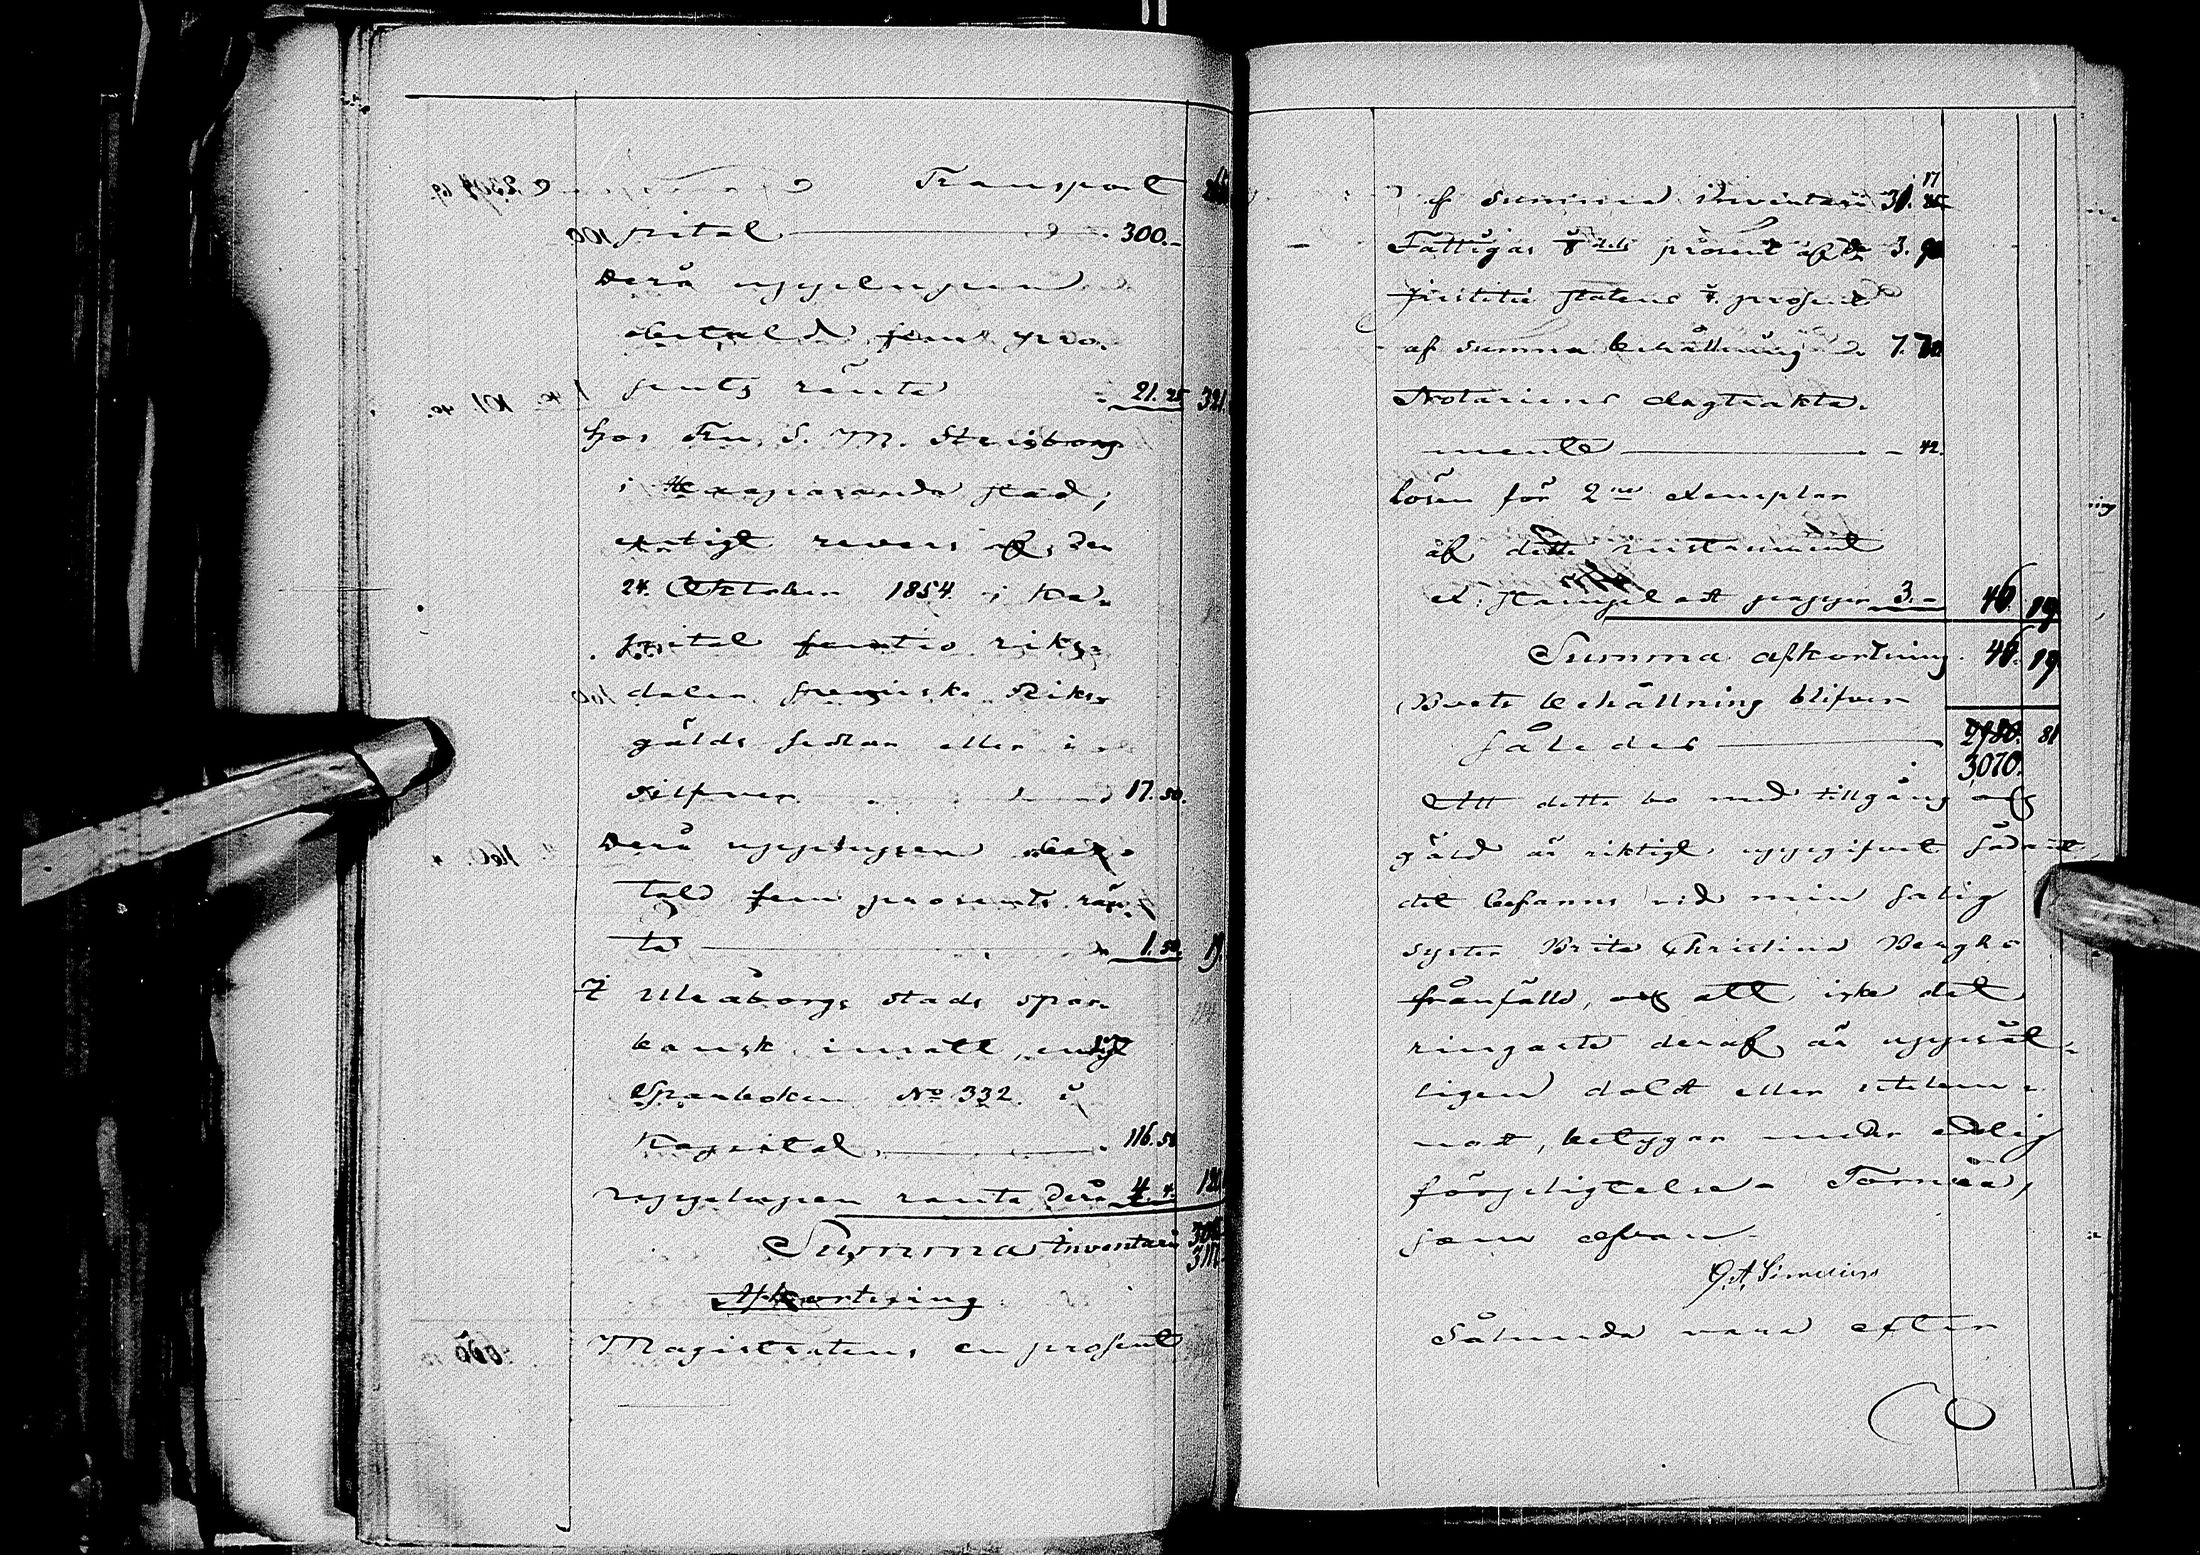 Transport
pital 300.-
Derå upplupen
obetald fem pro-
sents ränta 21.25 321
hos Fru S. M. Steisborg
i Haaparanda stad,
enligt revers af den
24. Oktober 1854 i Ka-
pital femtio riks-
daler svenska Riks-
gälds sedlar eller i
silfver 17.50.
Derå upplupen obe-
tald fem prosents rän-
ta 1.50. 19.
I Uleåborgs stads spar-
bank insatt, enligt
Sparboken No 332. i
Kapital 116.50
upplupen ränta derå 4. 4. 120
Summa Inventarii
3111
Afkortning
Magistratens en prosent
af Summa Inventarii 31. 17
Fattigas prosent af do 3. 90
af summa behållning 7. 70
Notariens dagtrakta-
mente - 42.
lösen för 2ne exemplar
af detta instrument
et. stämpladt papper 3.- 46. 19
Summa afkortning 46. 19
Boets behållning blifver
således 2980. 81
3070.
Att detta bo med tillgång och
gäld är riktigt uppgifvet sådant
det befanns vid min salig
syster Brita Christina Bergbo
frånfälle, och att icke det
ringaste deraf är uppsåt-
ligen doldt eller utelem-
nadt, betygar under edelig
förpligtelse. Torneå,
som ofvan.
G. A. Simelius
Sålunda vara efter